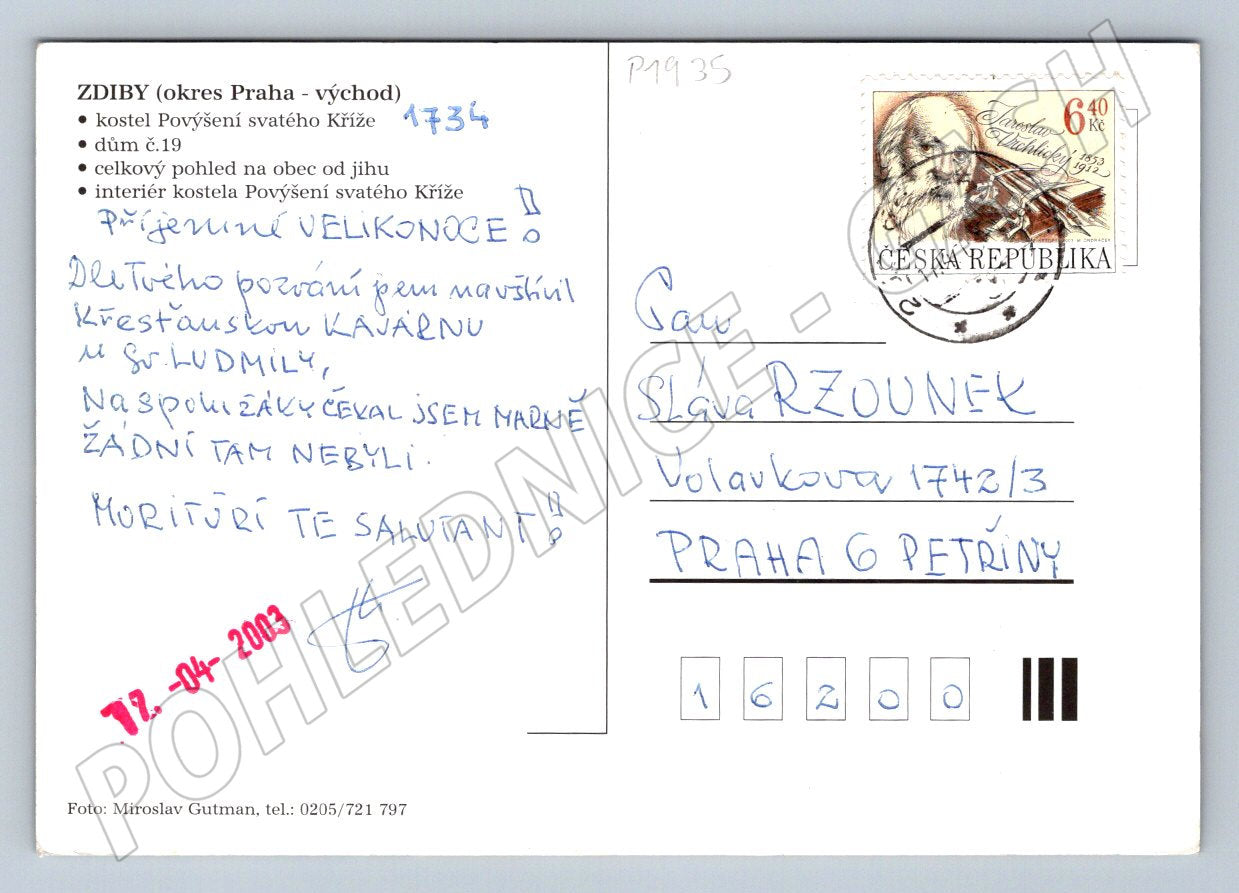 ZDIBY (okres Praha - východ)
• kostel Povýšení svatého Kříže 1734
• dům č.19
• celkový pohled na obec od jihu
• interiér kostela Povýšení svatého Kříže
Příjemné VELIKONOCE!
Dle Tvého pozvání jsem navštívil
Křesťanskou KAVÁRNU
u Sv. LUDMILY,
Na spolužÁKY ČEKAL JSEM MARNĚ
ŽÁDNÍ TAM NEBYLI.
MORITÚRÍ TE SALUTANT!
12. -04- 2003
Foto: Miroslav Gutman, tel.: 0205/721 797
P1935
Jaroslav
Vrchlický
1853
1912
6 40
Kč
ČESKÁ REPUBLIKA
Pan
Sláva RZOUNEK
Volavkova 1742/3
PRAHA 6 PETŘINY
16200
POHLEDNICE - CASH